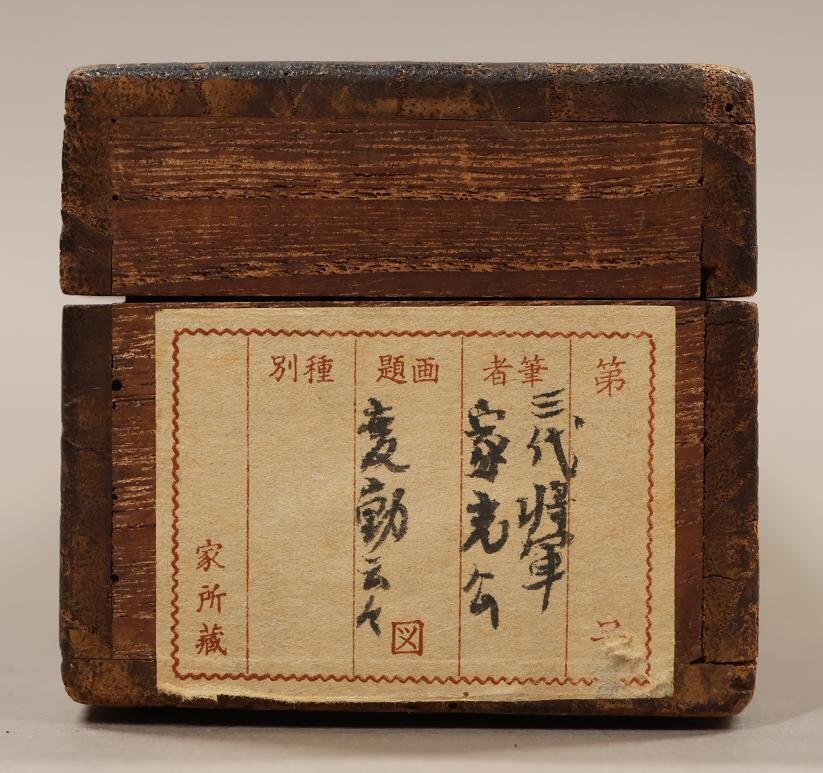 第
筆者
三代将軍
家光公
画題
変動云々
図
種別
家所藏